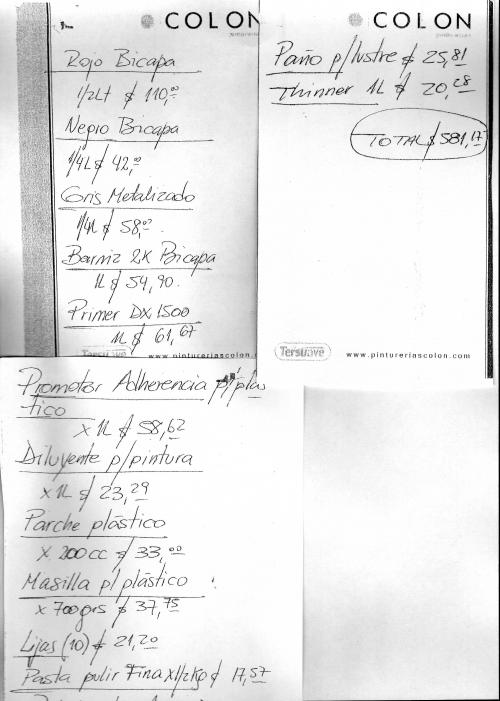 COLON
Rojo Bicapa
1/2Lt $ 110,00
Negro Bicapa
1/4L $ 42,00
Gris Metalizado
1/4L $ 58,00.
Barniz 2K Bicapa
1L $ 54,90.
Primer DX 1500
1L $ 61,67
Tersuave www.pintureriascolon.
COLON
Paño p/lustre $ 25,81
Thinner 1L $ 20,28
TOTAL $ 581,17
Tersuave www.pintureriascolon.com
Promotor Adherencia p/plas
tico
x 1L $ 58,62
Diluyente p/pintura
x 1L $ 23,29
Parche plástico
x 200cc $ 33,00
Masilla p/plástico
x 700grs $ 37,75
Lijas (10) $ 21,20
Pasta pulir Fina x1/2Kg $ 17,57